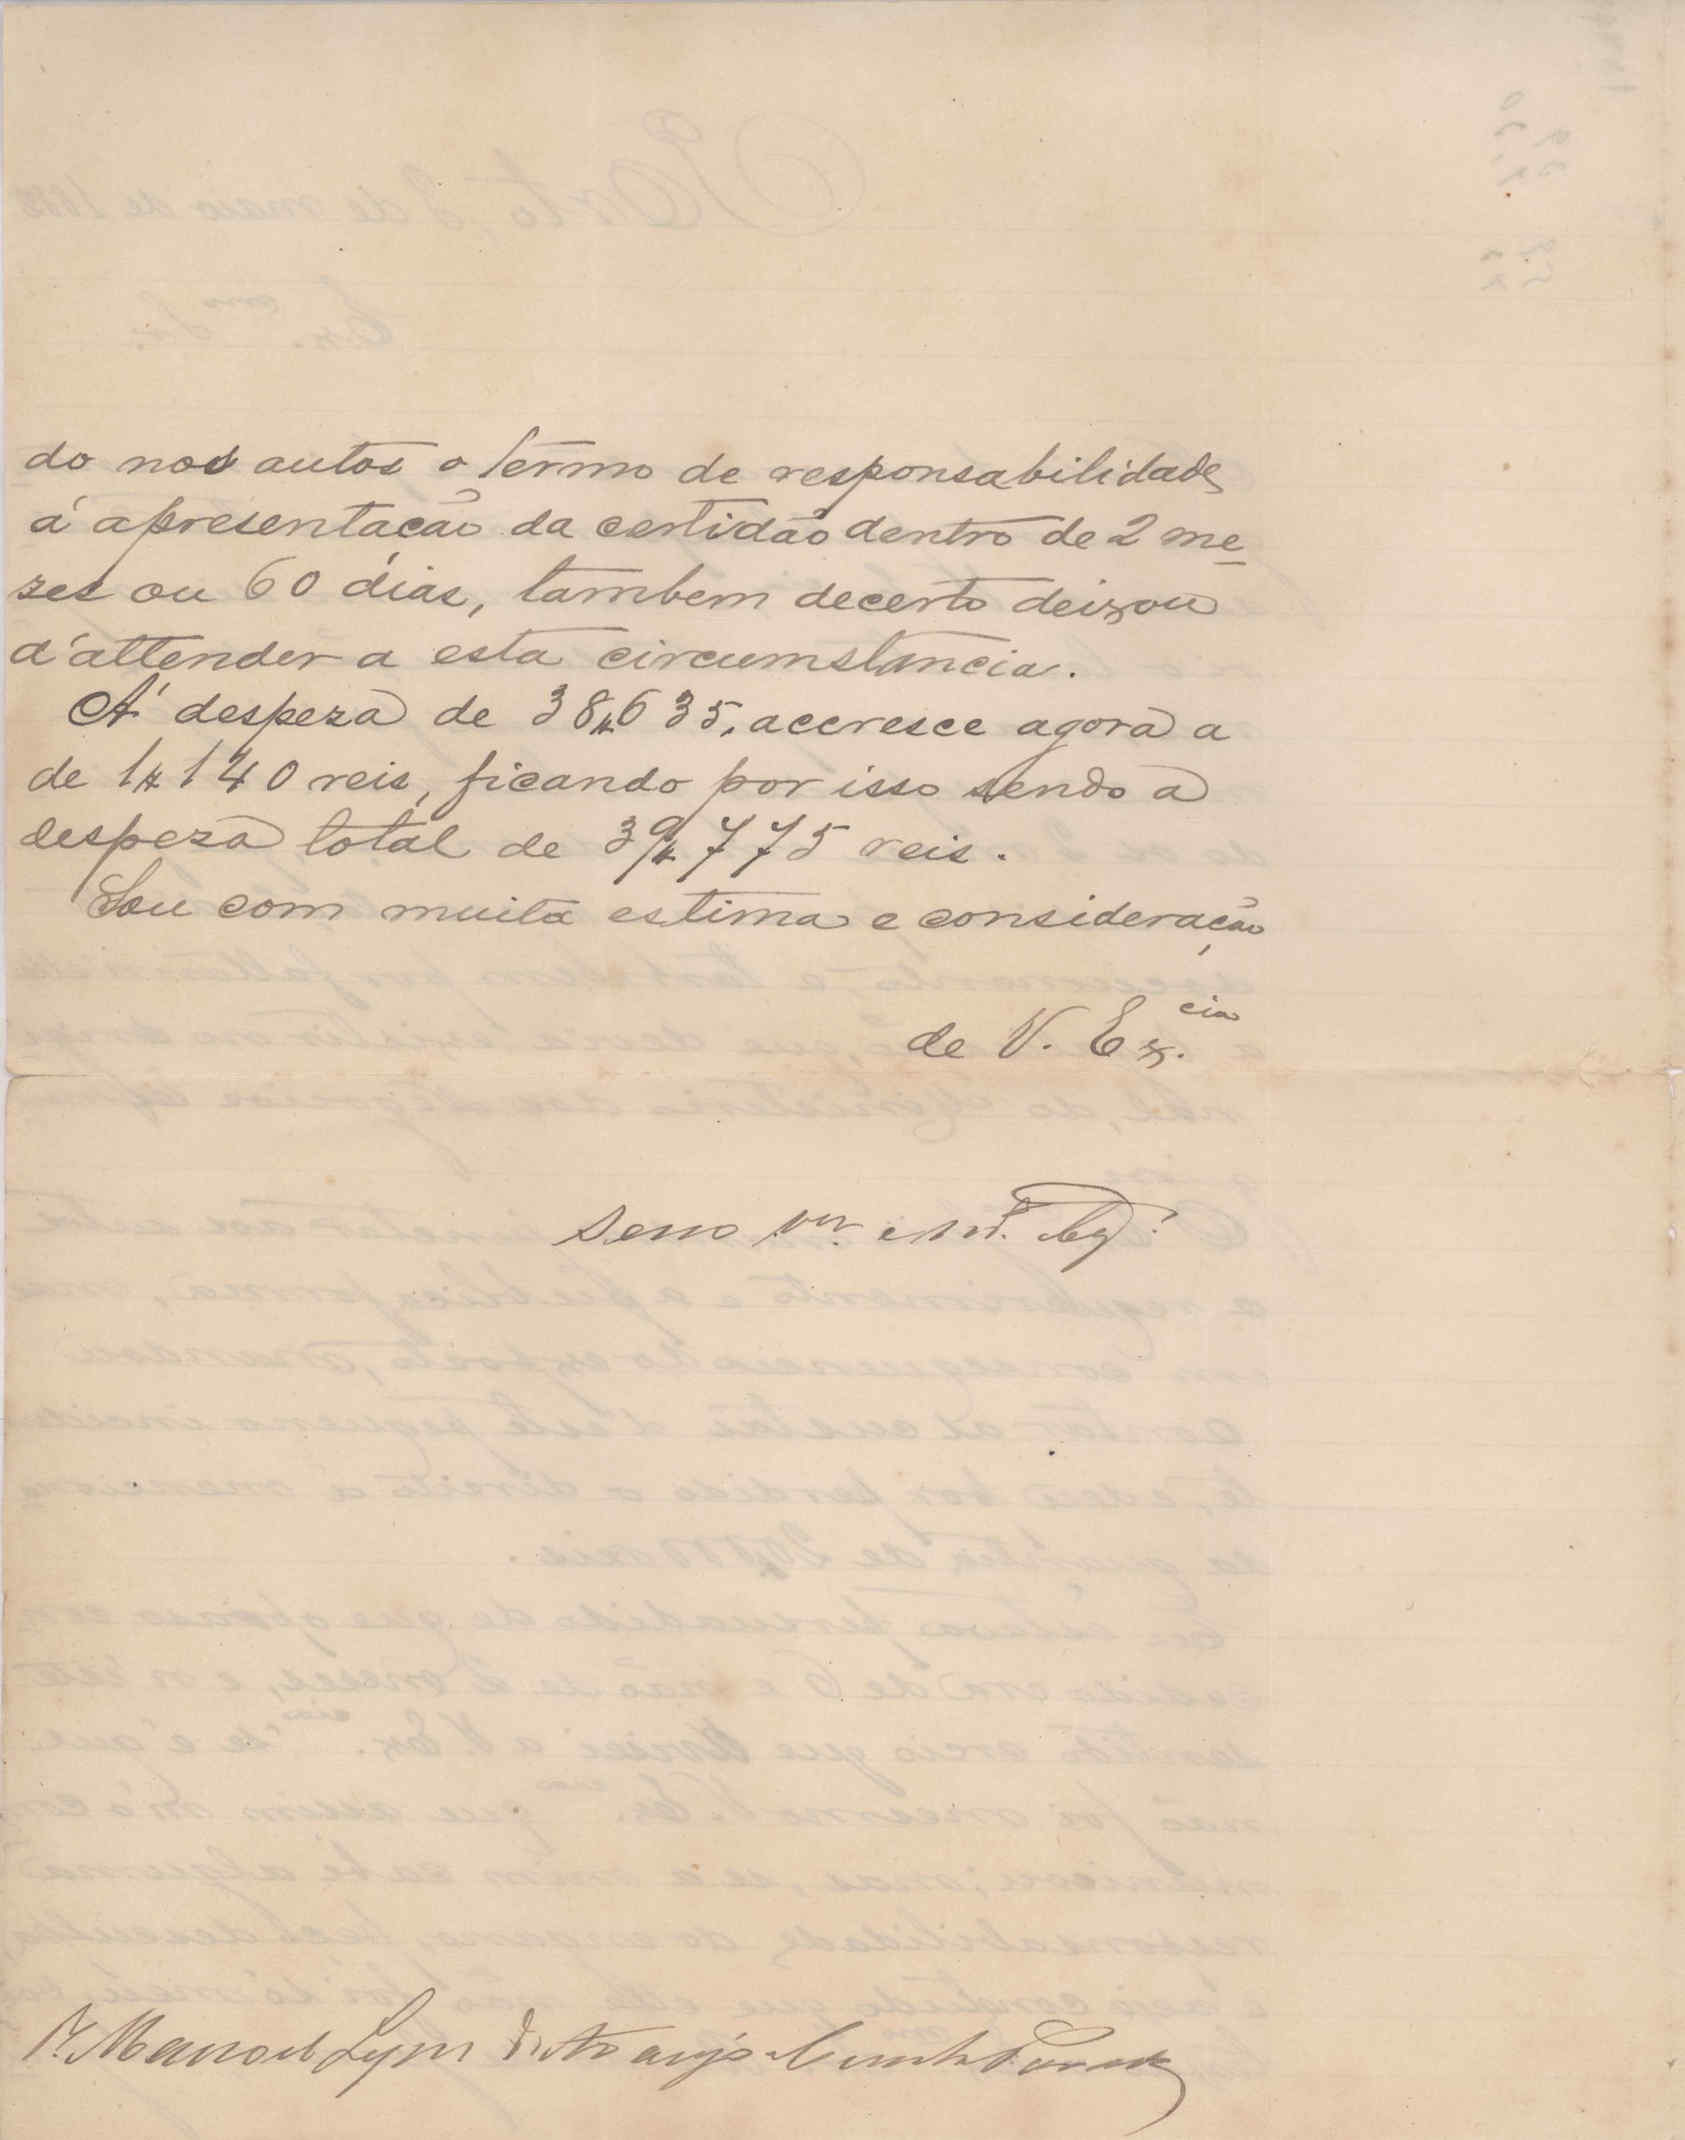 do nos autos o termo de responsabilidade
á apresentação da certidão dentro de 2 me
zes ou 60 dias, tambem decerto deixou
d'attender a esta circumstancia.
Á despeza de 38$635, accresce agora a
de 1$140 reis, ficando por isso sendo a
despeza total de 39$775 reis.
Sou com muita estima e consideração
de V. Ex.cia
Manoel de Araujo